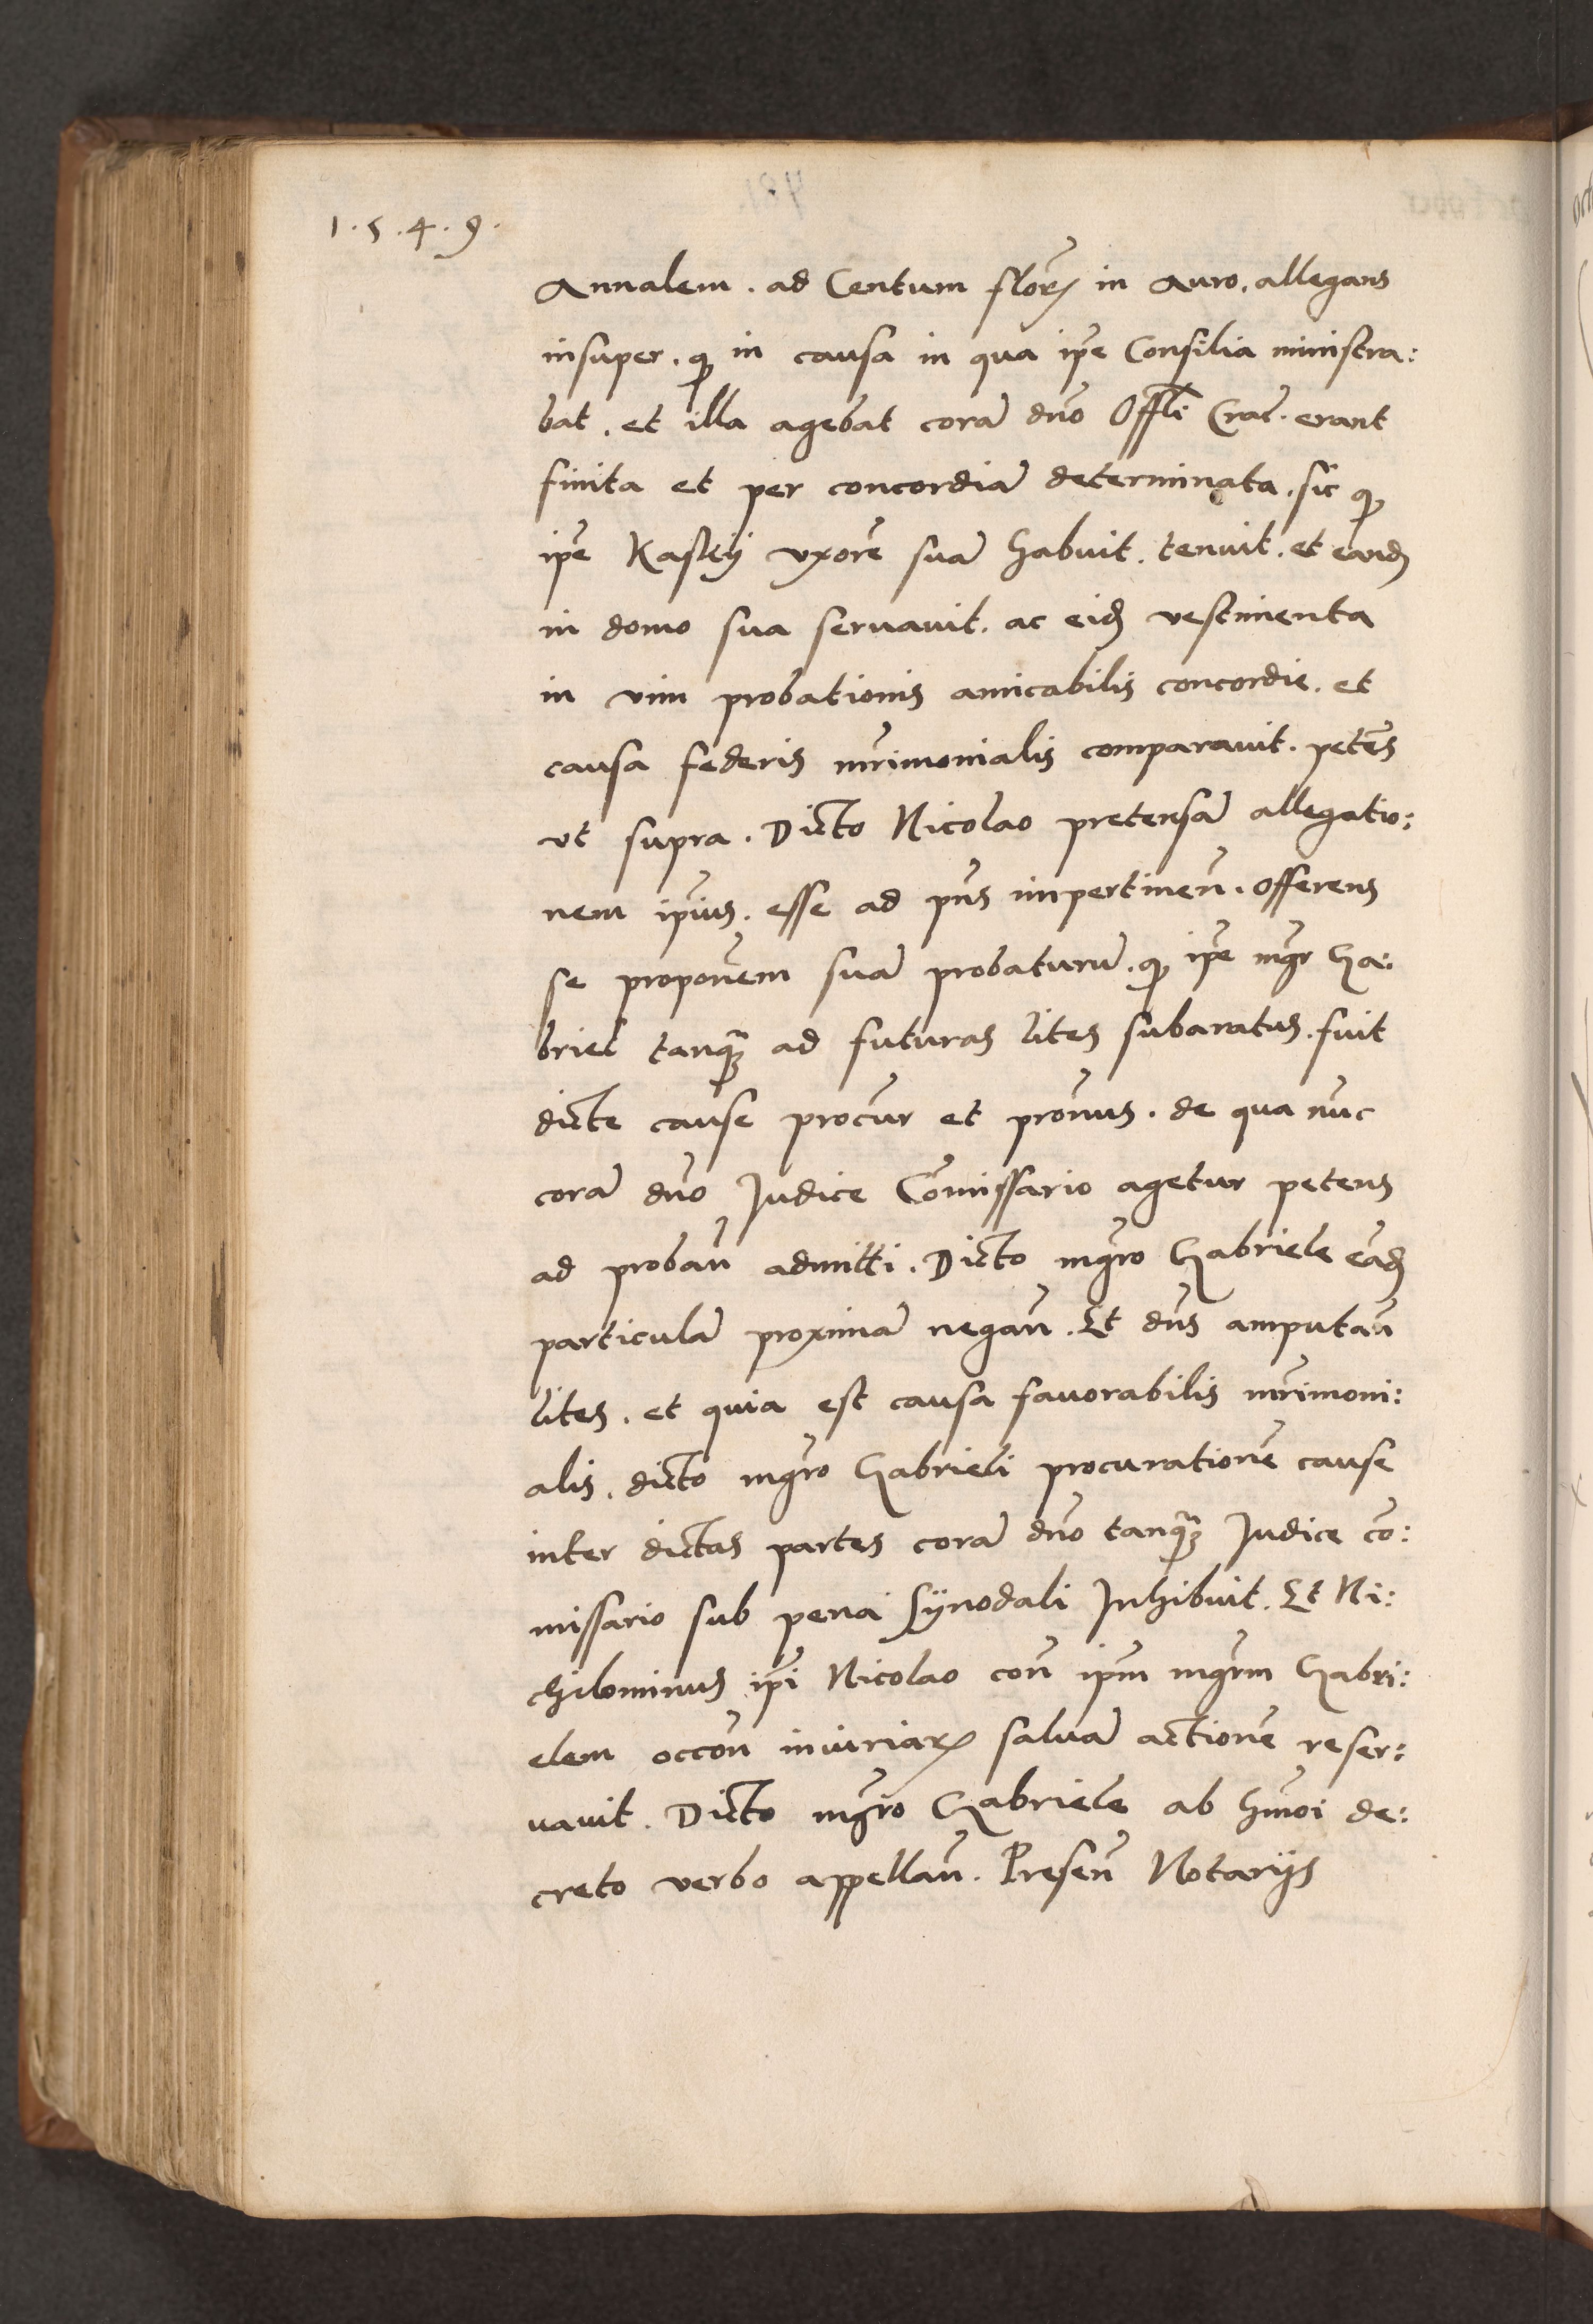 1.5.4.9.
Annalem. ad Centum floꝝ in Auro, allegans
insuper. ꝙ in causa in qua ip̄e Consilia ministra:
bat. et illa agebat corā dn̄o Offl̄i Crac̄. erant
finita et per concordiā determinata. sic ꝙ
ip̄e Kaslij vxorē suā habuit. tenuit. et eand
in domo sua seruauit. ac eid vestimenta
in vim probationis amicabilis concordie. et
causa federis mr̄imonialis comparauit. petēs
vt supra. Dicto Nicolao pretensā allegatio:
nem ip̄ius. esse ad pn̄s impertinen̄. Offerens
se propon̄em suā probaturū. ꝙ ip̄e mgr̄ Ga:
briel tanqꝫ ad futuras lites subaratus. fuit
dicte cause procur̄ et pron̄us. de qua nūc
corā dn̄o Judice Com̄issario agetur petens
ad proban̄ admitti. Dicto mgr̄o Gabriele eād
particulā proximā negan̄. Et dn̄s amputan̄
lites. et quia est causa fauorabilis mr̄imoni:
alis. dicto mgr̄o Gabrieli procurationē cause
inter dictas partes corā dn̄o tanqꝫ Judice cō:
missario sub pena Synodali Inhibuit. Et Ni:
chilominus ip̄i Nicolao con̄ ip̄m mgr̄m Gabri:
elem occōn̄ iniuriaꝝ saluā actionē reser:
uauit. Dicto mgr̄o Gabriele ab hmōi de:
creto verbo appellan̄. Presen̄ Notarijs